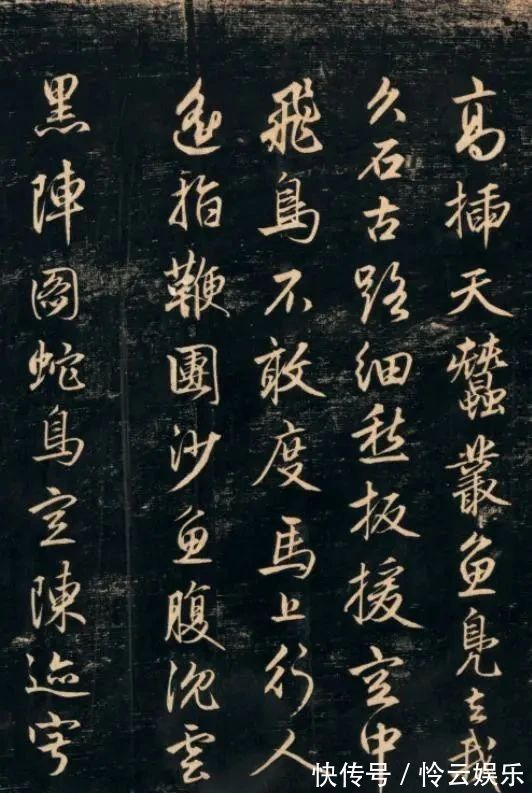 高插天蠶叢魚鳧去我
久石古路細愁扳援空中
飛鳥不敢度馬上行人
遙指鞭團沙魚腹沈雲
黑陣圖蛇鳥空陳迹
快传号/怜云娱乐